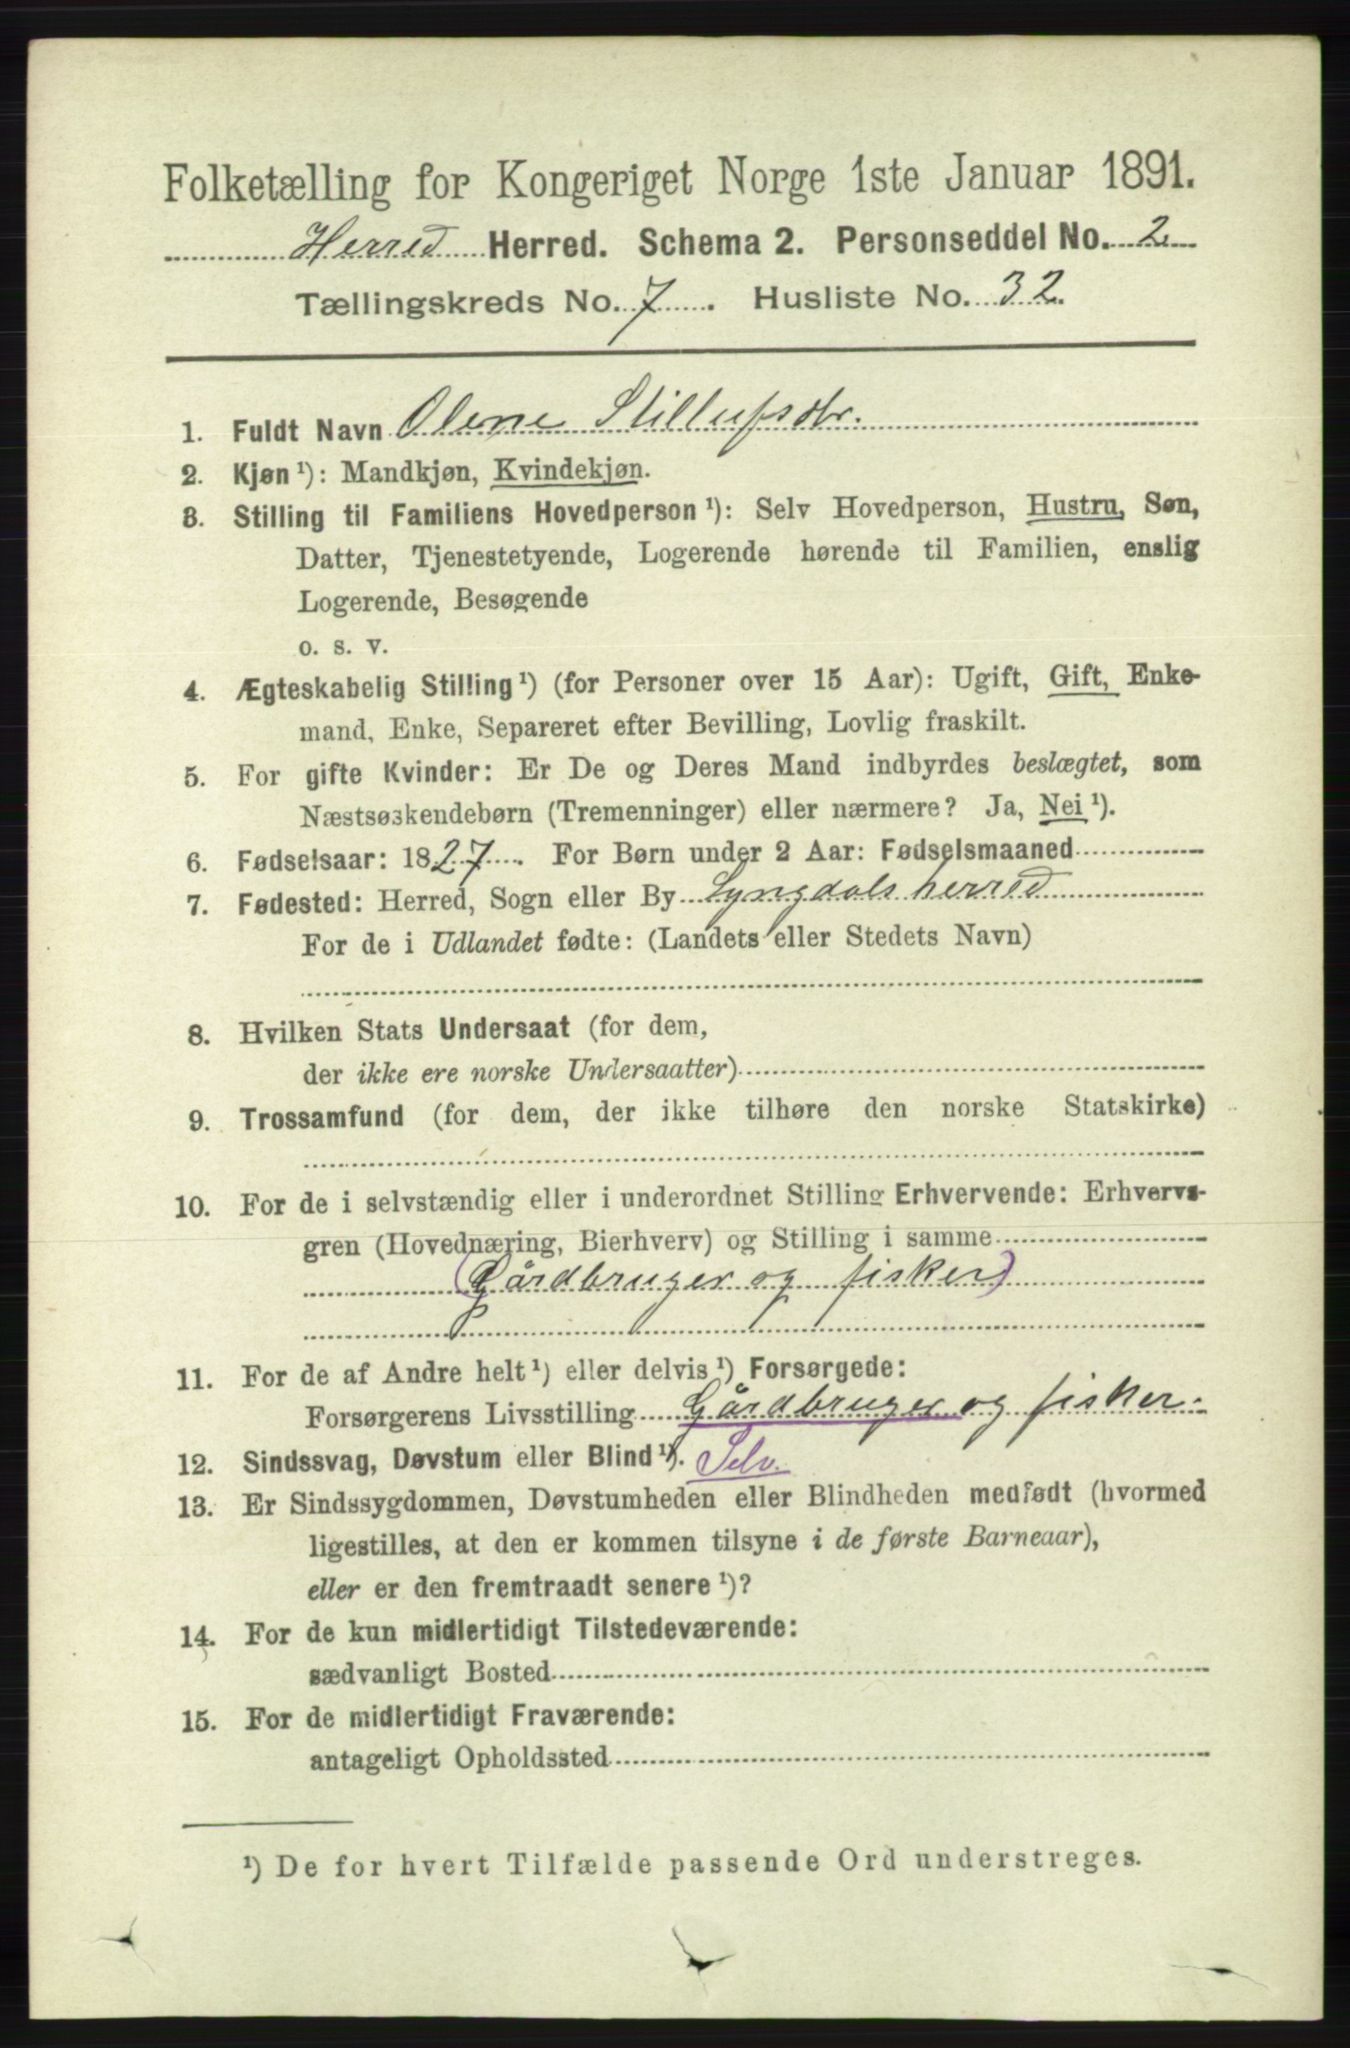 Folketælling for Kongeriget Norge 1ste Januar 1891.
Herred Herred. Schema 2. Personseddel No. 2
Tællingskreds No. 7. Husliste No. 32.
1. Fuldt Navn Olene Stillufsdtr.
2. Kjøn ¹): Mandkjøn, Kvindekjøn.
3. Stilling til Familiens Hovedperson ¹): Selv Hovedperson, Hustru, Søn,
Datter, Tjenestetyende, Logerende hørende til Familien, enslig
Logerende, Besøgende
o. s. v.
4. Ægteskabelig Stilling ¹) (for Personer over 15 Aar): Ugift, Gift, Enke-
mand, Enke, Separeret efter Bevilling, Lovlig fraskilt.
5. For gifte Kvinder: Er De og Deres Mand indbyrdes beslægtet, som
Næstsøskendebørn (Tremenninger) eller nærmere? Ja, Nei ¹).
6. Fødselsaar: 1827. For Børn under 2 Aar: Fødselsmaaned
7. Fødested: Herred, Sogn eller By Lyngdals herred
For de i Udlandet fødte: (Landets eller Stedets Navn)
8. Hvilken Stats Undersaat (for dem,
der ikke ere norske Undersaatter)
9. Trossamfund (for dem, der ikke tilhøre den norske Statskirke)
10. For de i selvstændig eller i underordnet Stilling Erhvervende: Erhvervs-
gren (Hovednæring, Bierhverv) og Stilling i samme
(Gårdbruger og fisker)
11. For de af Andre helt ¹) eller delvis ¹) Forsørgede:
Forsørgerens Livsstilling Gårdbruger og fisker.
12. Sindssvag, Døvstum eller Blind ¹). Selv.
13. Er Sindssygdommen, Døvstumheden eller Blindheden medfødt (hvormed
ligestilles, at den er kommen tilsyne i de første Barneaar),
eller er den fremtraadt senere ¹)?
14. For de kun midlertidigt Tilstedeværende:
sædvanligt Bosted
15. For de midlertidigt Fraværende:
antageligt Opholdssted
¹) De for hvert Tilfælde passende Ord understreges.